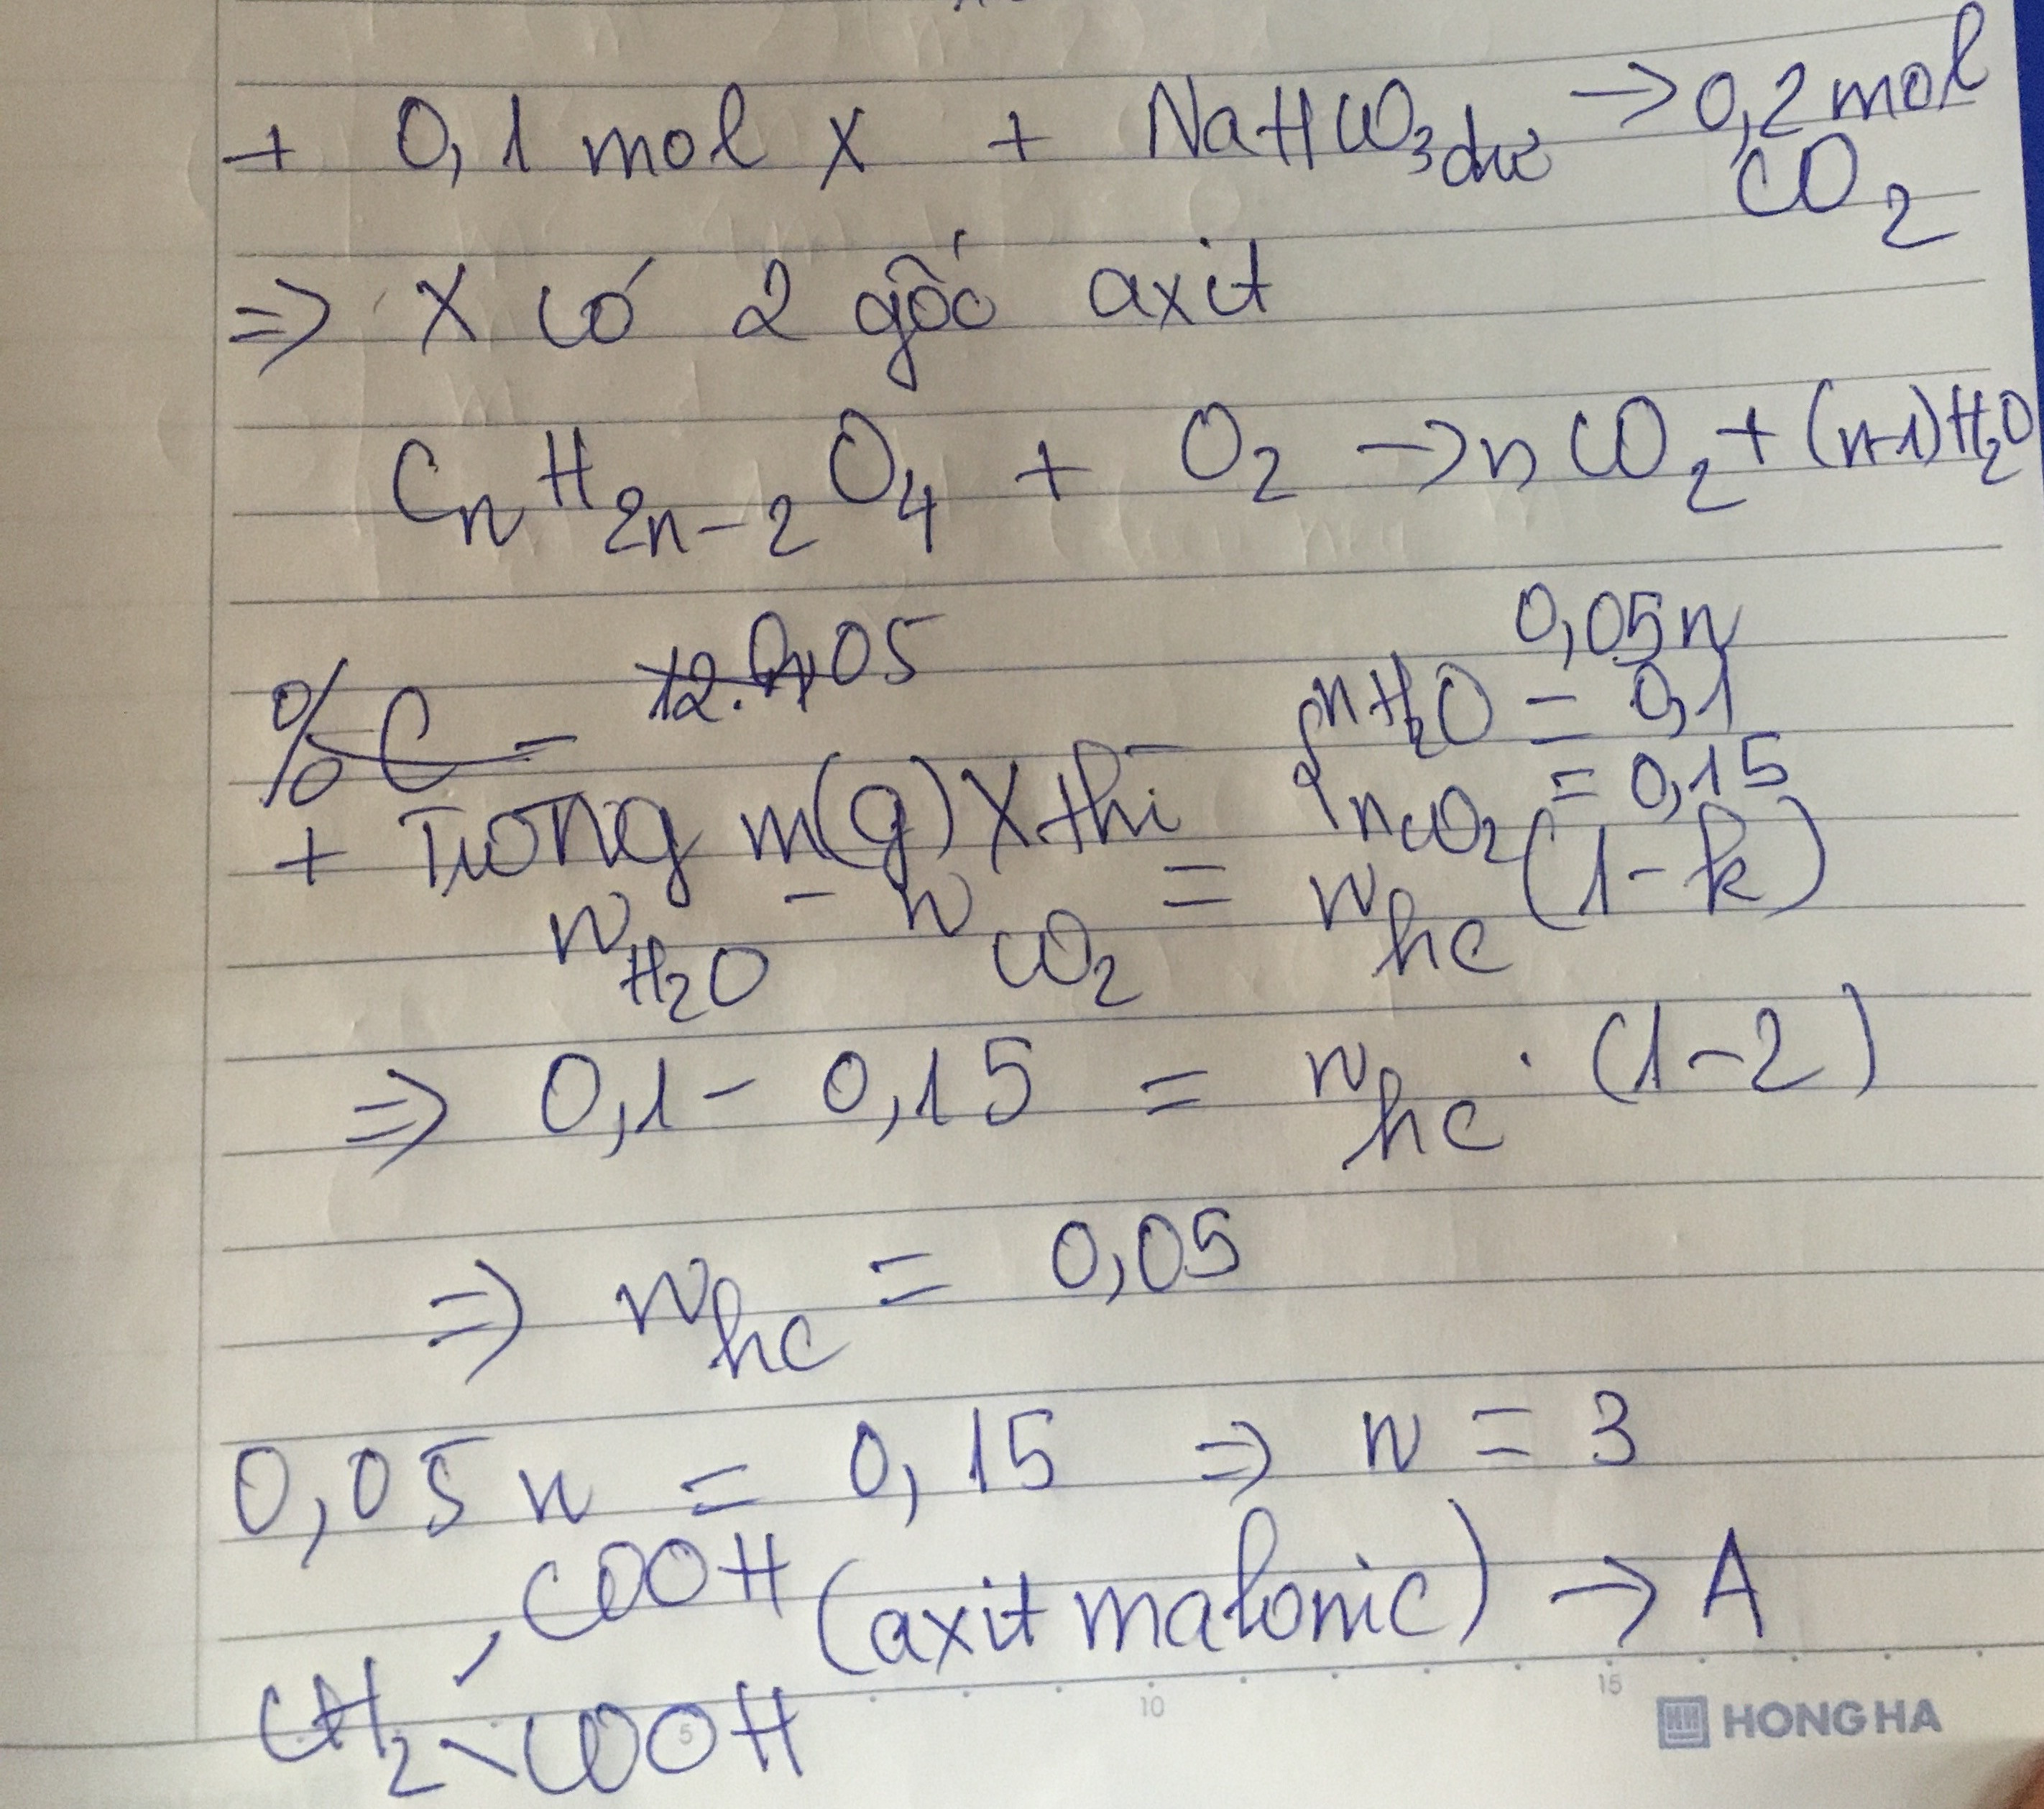 + 0,1 mol X + NaHCO3 dư → 0,2 mol CO2
=> X có 2 gốc axit
CnH2n-2O4 + O2 → nCO2 + (n-1)H2O
0,05n
%C = 12.0,05
+ Trong m(g) X thì { nH2O = 0,1
nCO2 = 0,15
nH2O - nCO2 = nhc (1-k)
=> 0,1 - 0,15 = nhc . (1-2)
=> nhc = 0,05
0,05n = 0,15 => n = 3
COOH (axit malonic) → A
CH2
COOH
5 10 15
HONG HA